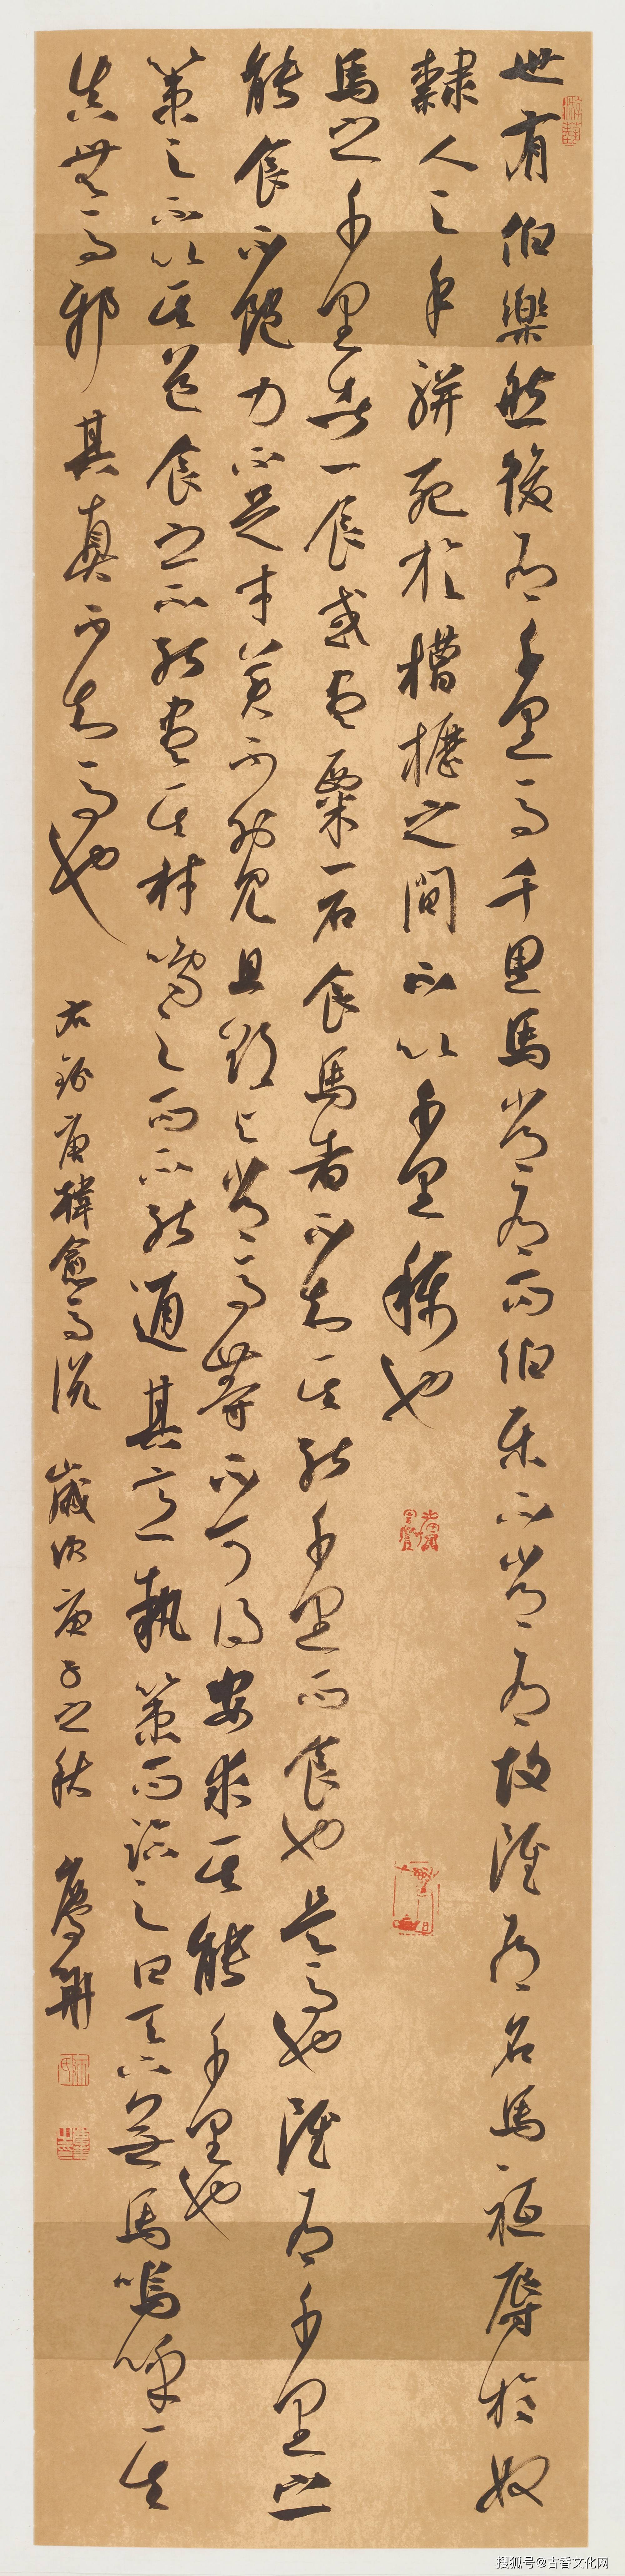 世有伯樂然後有千里馬千里馬常有而伯乐不常有故雖有名馬祗辱於奴
隸人之手駢死於槽櫪之間不以千里稱也
馬之千里者一食或盡粟一石食馬者不知其能千里而食也是馬也雖有千里之
能食不飽力不足才美不外見且欲与常馬等不可得安求其能千里也
策之不以其道食之不能盡其材鳴之而不能通其意執策而臨之曰天下無馬嗚呼其
真無馬邪其真不知馬也
右錄唐韓愈馬說 歲次庚子之秋
搜狐号@古香文化网